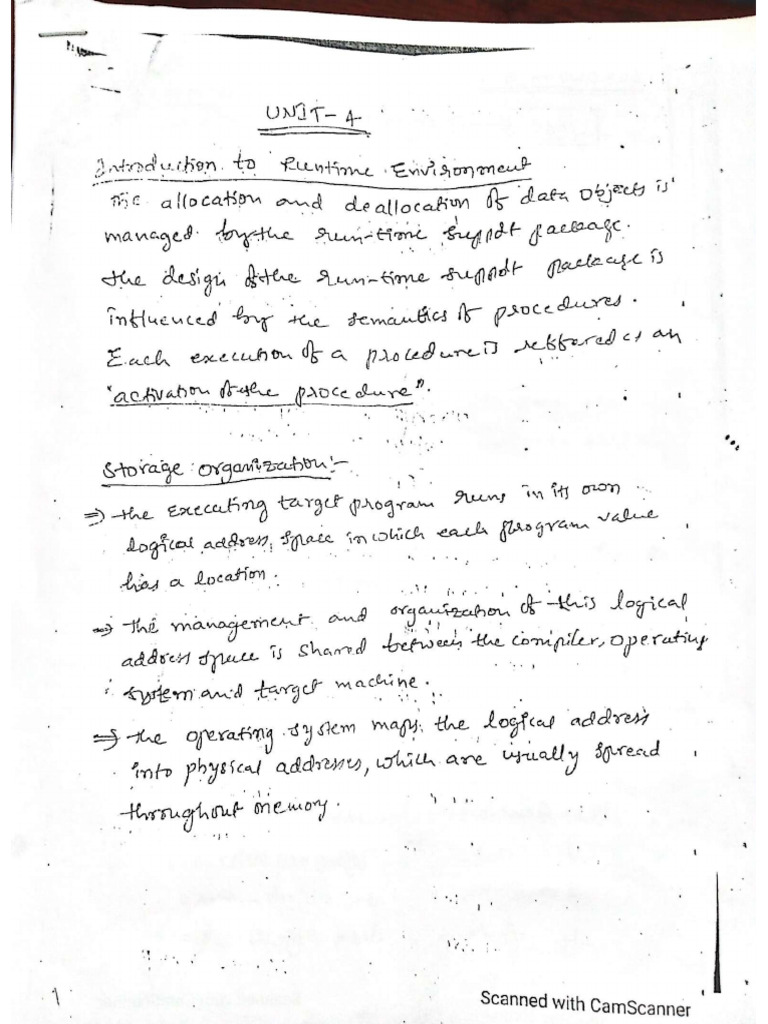 UNIT-4
Introduction to Runtime Environment
The allocation and deallocation of data objects is
managed by the run-time support package.
the design of the run-time support package is
influenced by the semantics of procedures.
Each execution of a procedure is reffered as an
"activation of the procedure".
Storage organization:-
⇒ the executing target program runs in its own
logical address, space in which each program value
has a location.
⇒ The management and organization of this logical
address space is shared between the compiler, operating
system and target machine.
⇒ the operating system maps the logical address
into physical addresses, which are usually spread
throughout memory.
1
Scanned with CamScanner